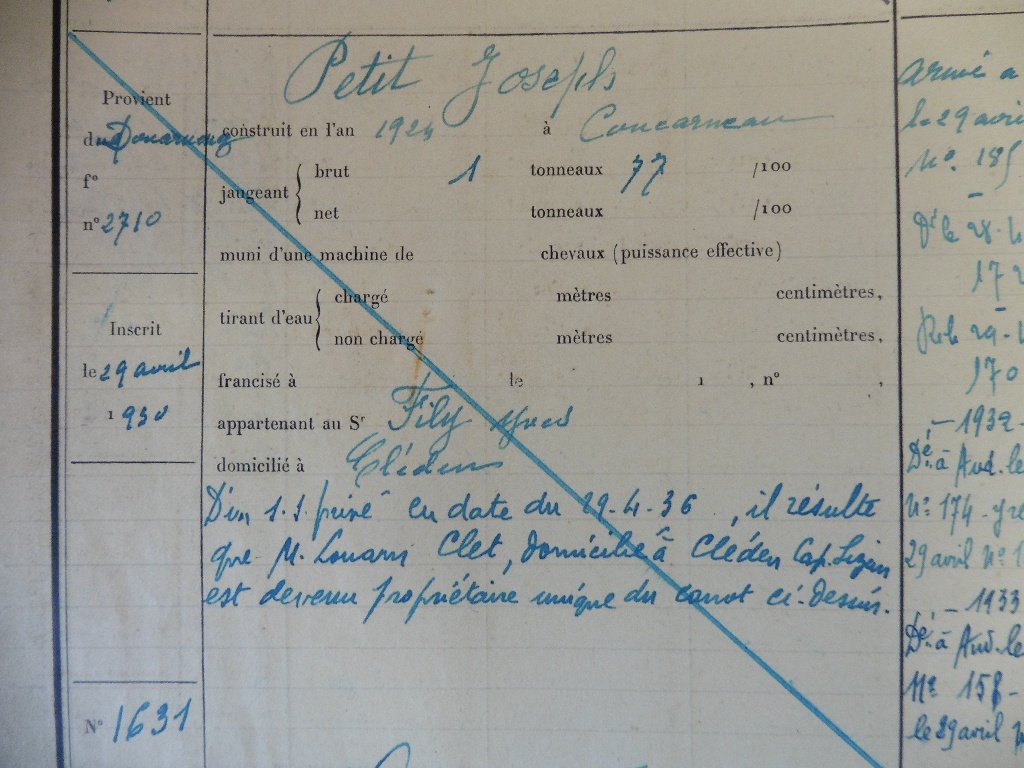 Petit Joseph
Provient
du Douarnenez
construit en l'an 1924 à Concarneau
f°
n° 2710
jaugeant
brut 1 tonneaux 77 /100
net tonneaux /100
muni d'une machine de chevaux (puissance effective)
tirant d'eau
chargé mètres centimètres,
non chargé mètres centimètres,
Inscrit
le 29 avril
1930
francisé à le 1 , n° ,
appartenant au Sr Fily Yves
domicilié à Cléden
D'un S.S. privé en date du 29-4-36, il résulte
que M. Louarn Clet, domicilié à Cléden Cap-Sizun
est devenu propriétaire unique du canot ci-dessus.
N° 1631
armé a
le 29 avri
N° 185
Dé le 28-
172
29-
170
1932-
Dé à Aud. le
N° 174 - 
29 avril N° 1
- 1933
Dé à Aud. le
N° 158 -
le 29 avril